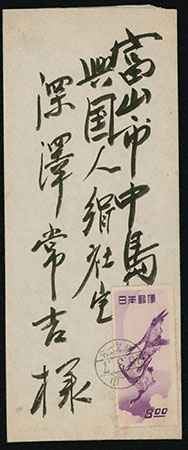 富山市中島
興国人絹社宅
深澤常吉様
日本郵便
8.00